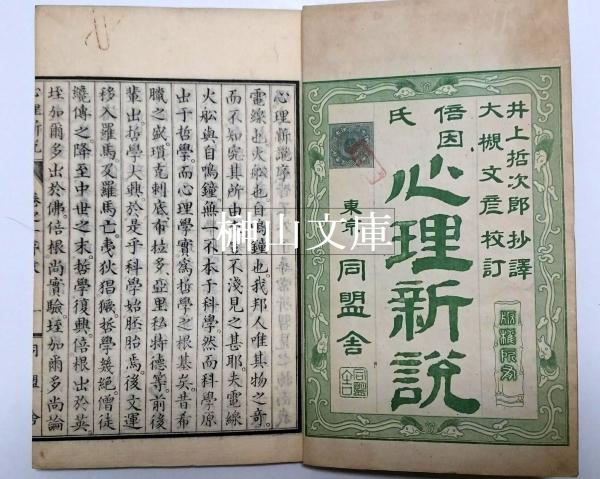 井上哲次郎 抄譯
大槻文彦 校訂
倍因氏
心理新説
版權所有
東京 同盟舎
榊山文庫
心理新說序
電線也火船也自鳴鐘也我邦人唯其物之奇
而不知究其所由
不淺見之甚耶夫電線
火船與自鳴鐘無一不本于科學然而科學原
出于哲學而心理學實爲哲學之根基矣昔希
臘之盛瑣克刺底布拉多亞里私特德等前後
輩出哲學大興於是乎科學始胚胎焉後文運
移入羅馬及羅馬亡夷狄猖獗哲學幾絕僧徒
纔傳之降至中世之末哲學復興倍根出於英
垤加爾多出於佛倍根尚實驗垤加爾多尚論
心理新說
同盟舎